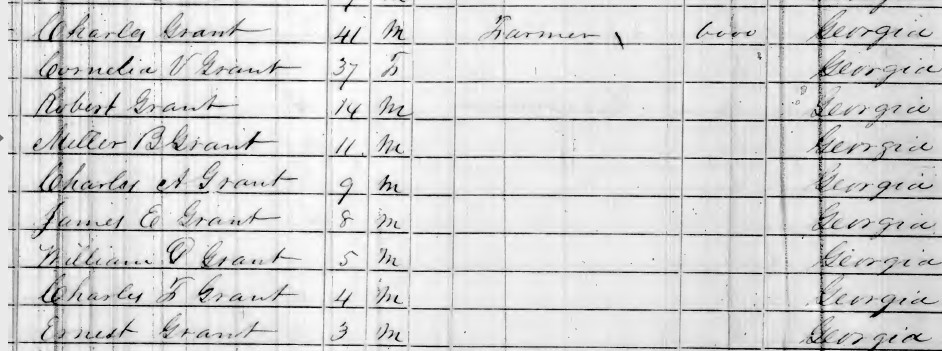 Charles Grant 41 M Farmer 6000 Georgia
Cornelia V Grant 37 F Georgia
Robert Grant 14 M Georgia
Miller B Grant 11 M Georgia
Charles A Grant 9 M Georgia
James E Grant 8 M Georgia
William D Grant 5 M Georgia
Charles F Grant 4 M Georgia
Ernest Grant 3 M Georgia